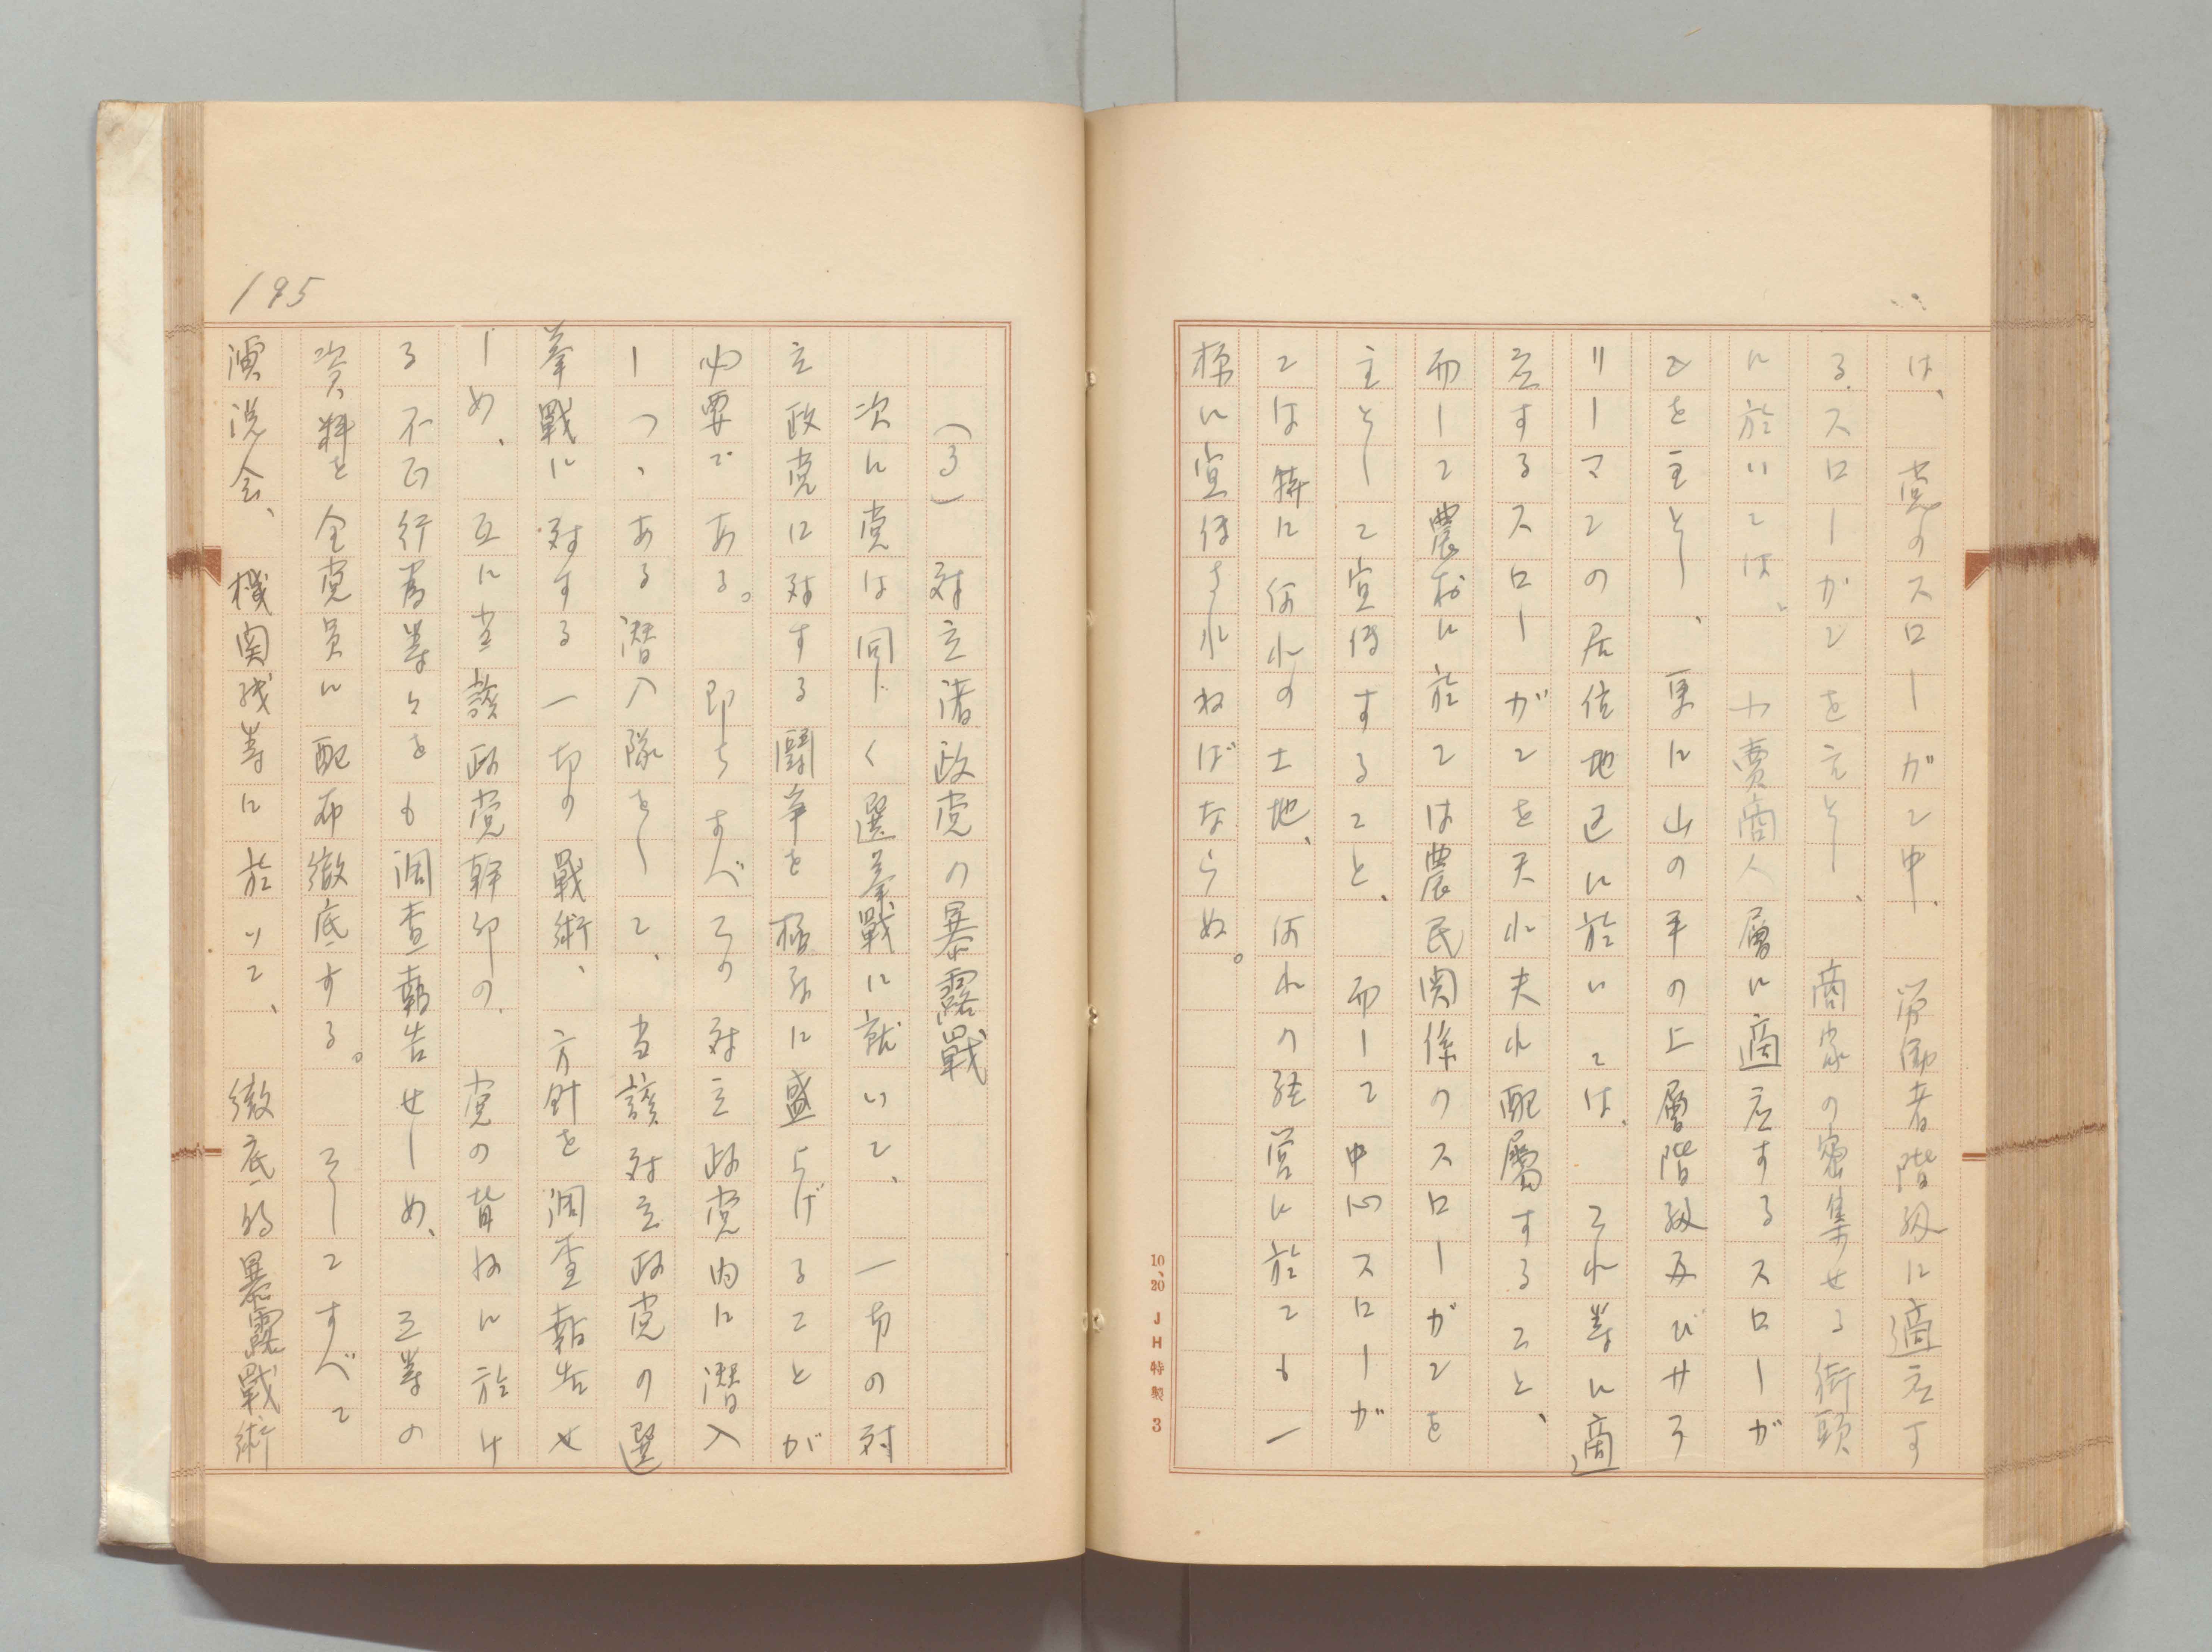 は、党のスローガン中、労働者階級に適応す
るスローガンを主とし、商家の密集せる街頭
に於いては、小売商人層に適応するスローガ
ンを主とし、更に山の手の上層階級及びサラ
リーマンの居住地区に於いては、それ等に適
応するスローガンを夫れ夫れ配属すること、
而して農村に於ては農民関係のスローガンを
主として宣伝すること、而して中心スローガ
ンは特に何れの土地、何れの経営に於ても一
様に宣伝されねばならぬ。
10、20 JH特製 3
(3) 対立諸政党の暴露戰
次に党は同じく選挙戰に就いて、一切の対
立政党に対する闘争を極度に盛上げることが
必要である。即ちすべての対立政党内に潜入
しつゝある潜入隊をして、当該対立政党の選
挙戰に対する一切の戰術、方針を調査報告せ
しめ、互に当該政党幹部の、党の背後に於け
る不正行為等々をも調査報告せしめ、之等の
資料を全党員に配布徹底する。そしてすべて
演説会、機関紙等に於いて、徹底的暴露戰術
195